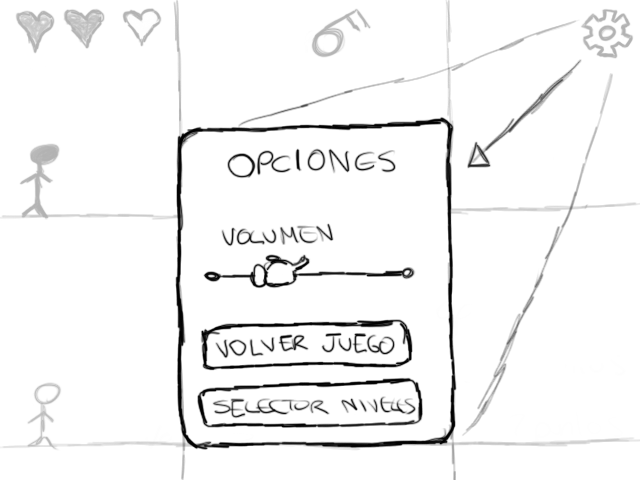 OPCIONES
VOLUMEN
VOLVER JUEGO
SELECTOR NIVELES